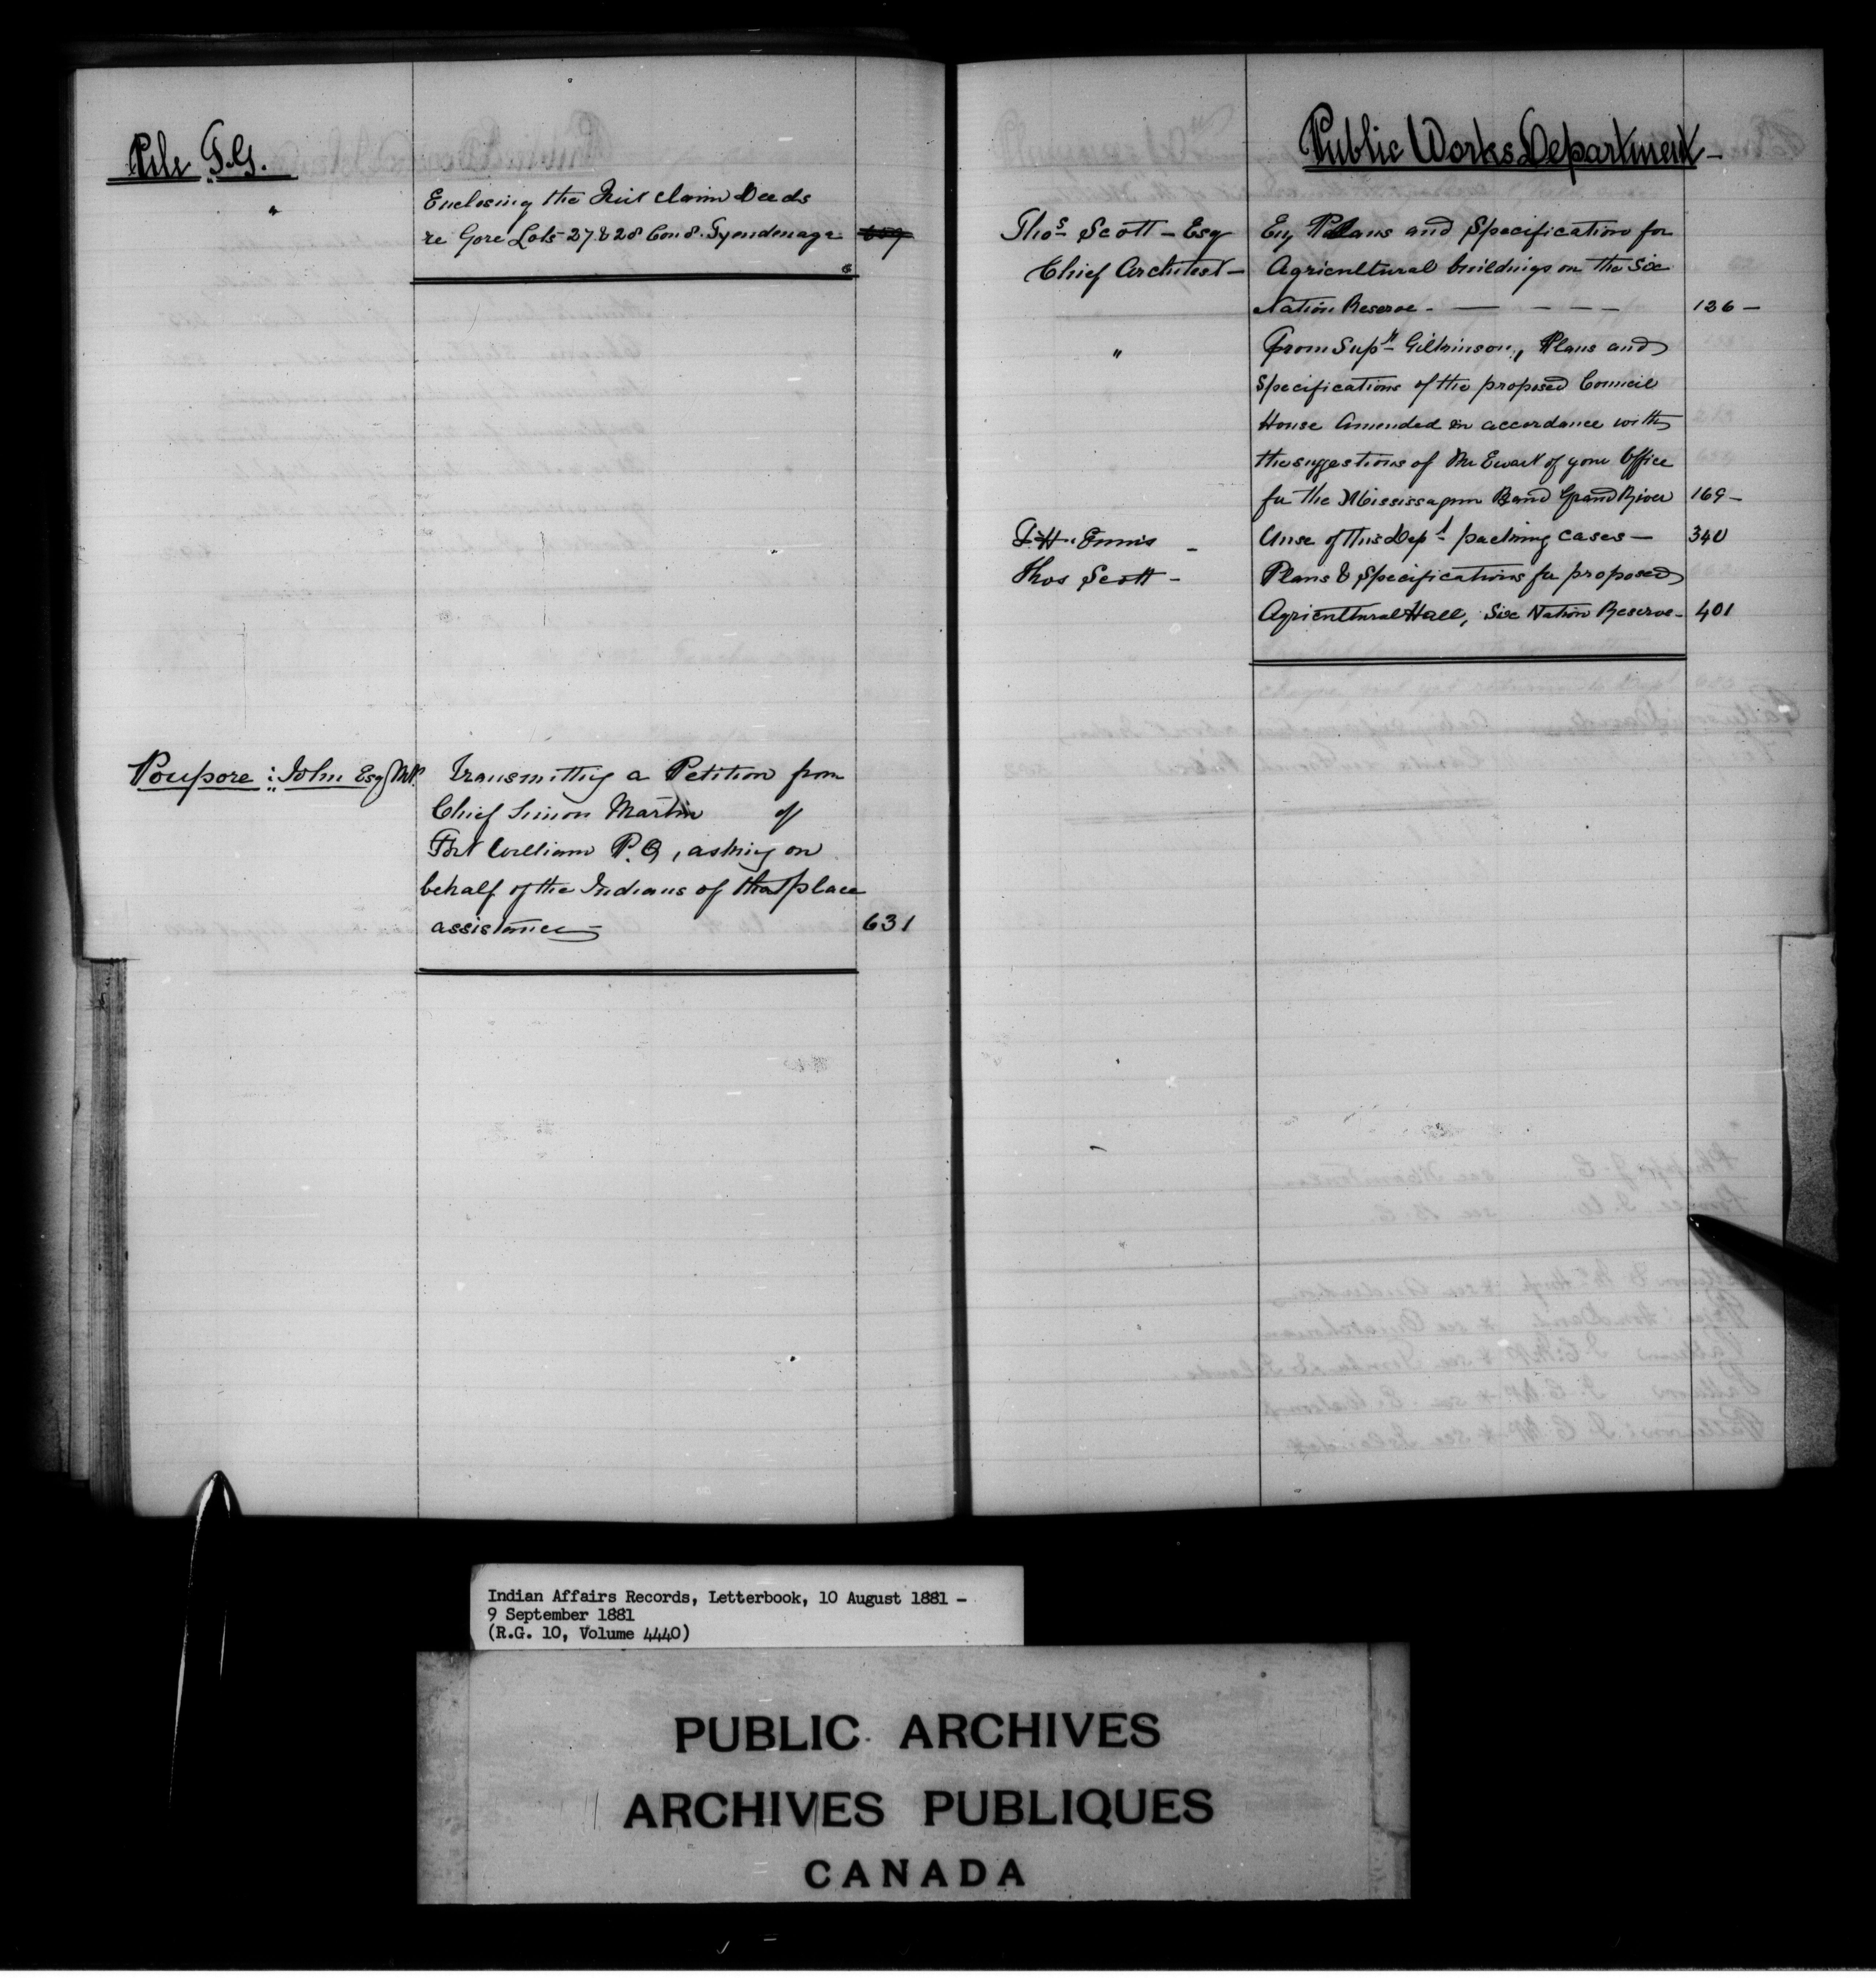 Pile T.G.
"
Enclosing the Quit Claim Deeds
re Gore Lots 27 & 28 Con 8. Tyendenaga
Poupore : John Esq M.P.
Transmitting a Petition from
Chief Simon Martin of
Fort William P.Q, asking on
behalf of the Indians of that place
assistance
631
Public Works Department
Thos Scott - Esq
Chief Architect -
Enq Plans and Specification for
Agricultural buildings on the Six
Nation Reserve - 126 -
" From Supt Gilkinson, Plans and
Specifications of the proposed Council
House Amended in accordance with
the suggestions of Mr Ewart of your Office
for the Mississagua Band Grand River 169 -
F.H. Ennis - Anse of this Dept packing cases - 340
Thos Scott - Plans & Specifications for proposed
Agricultural Hall, Six Nation Reserve - 401
Indian Affairs Records, Letterbook, 10 August 1881 -
9 September 1881
(R.G. 10, Volume 4440)
PUBLIC ARCHIVES
ARCHIVES PUBLIQUES
CANADA